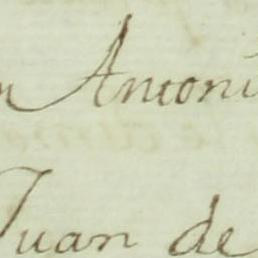 n Antoni
Juan de